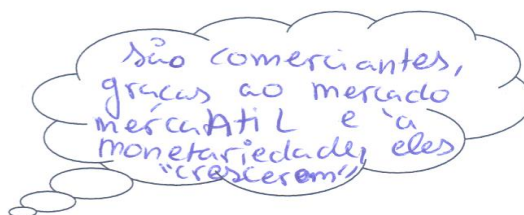 são comerciantes,
graças ao mercado
mercAtiL e à
monetariedade, eles
"cresceram"